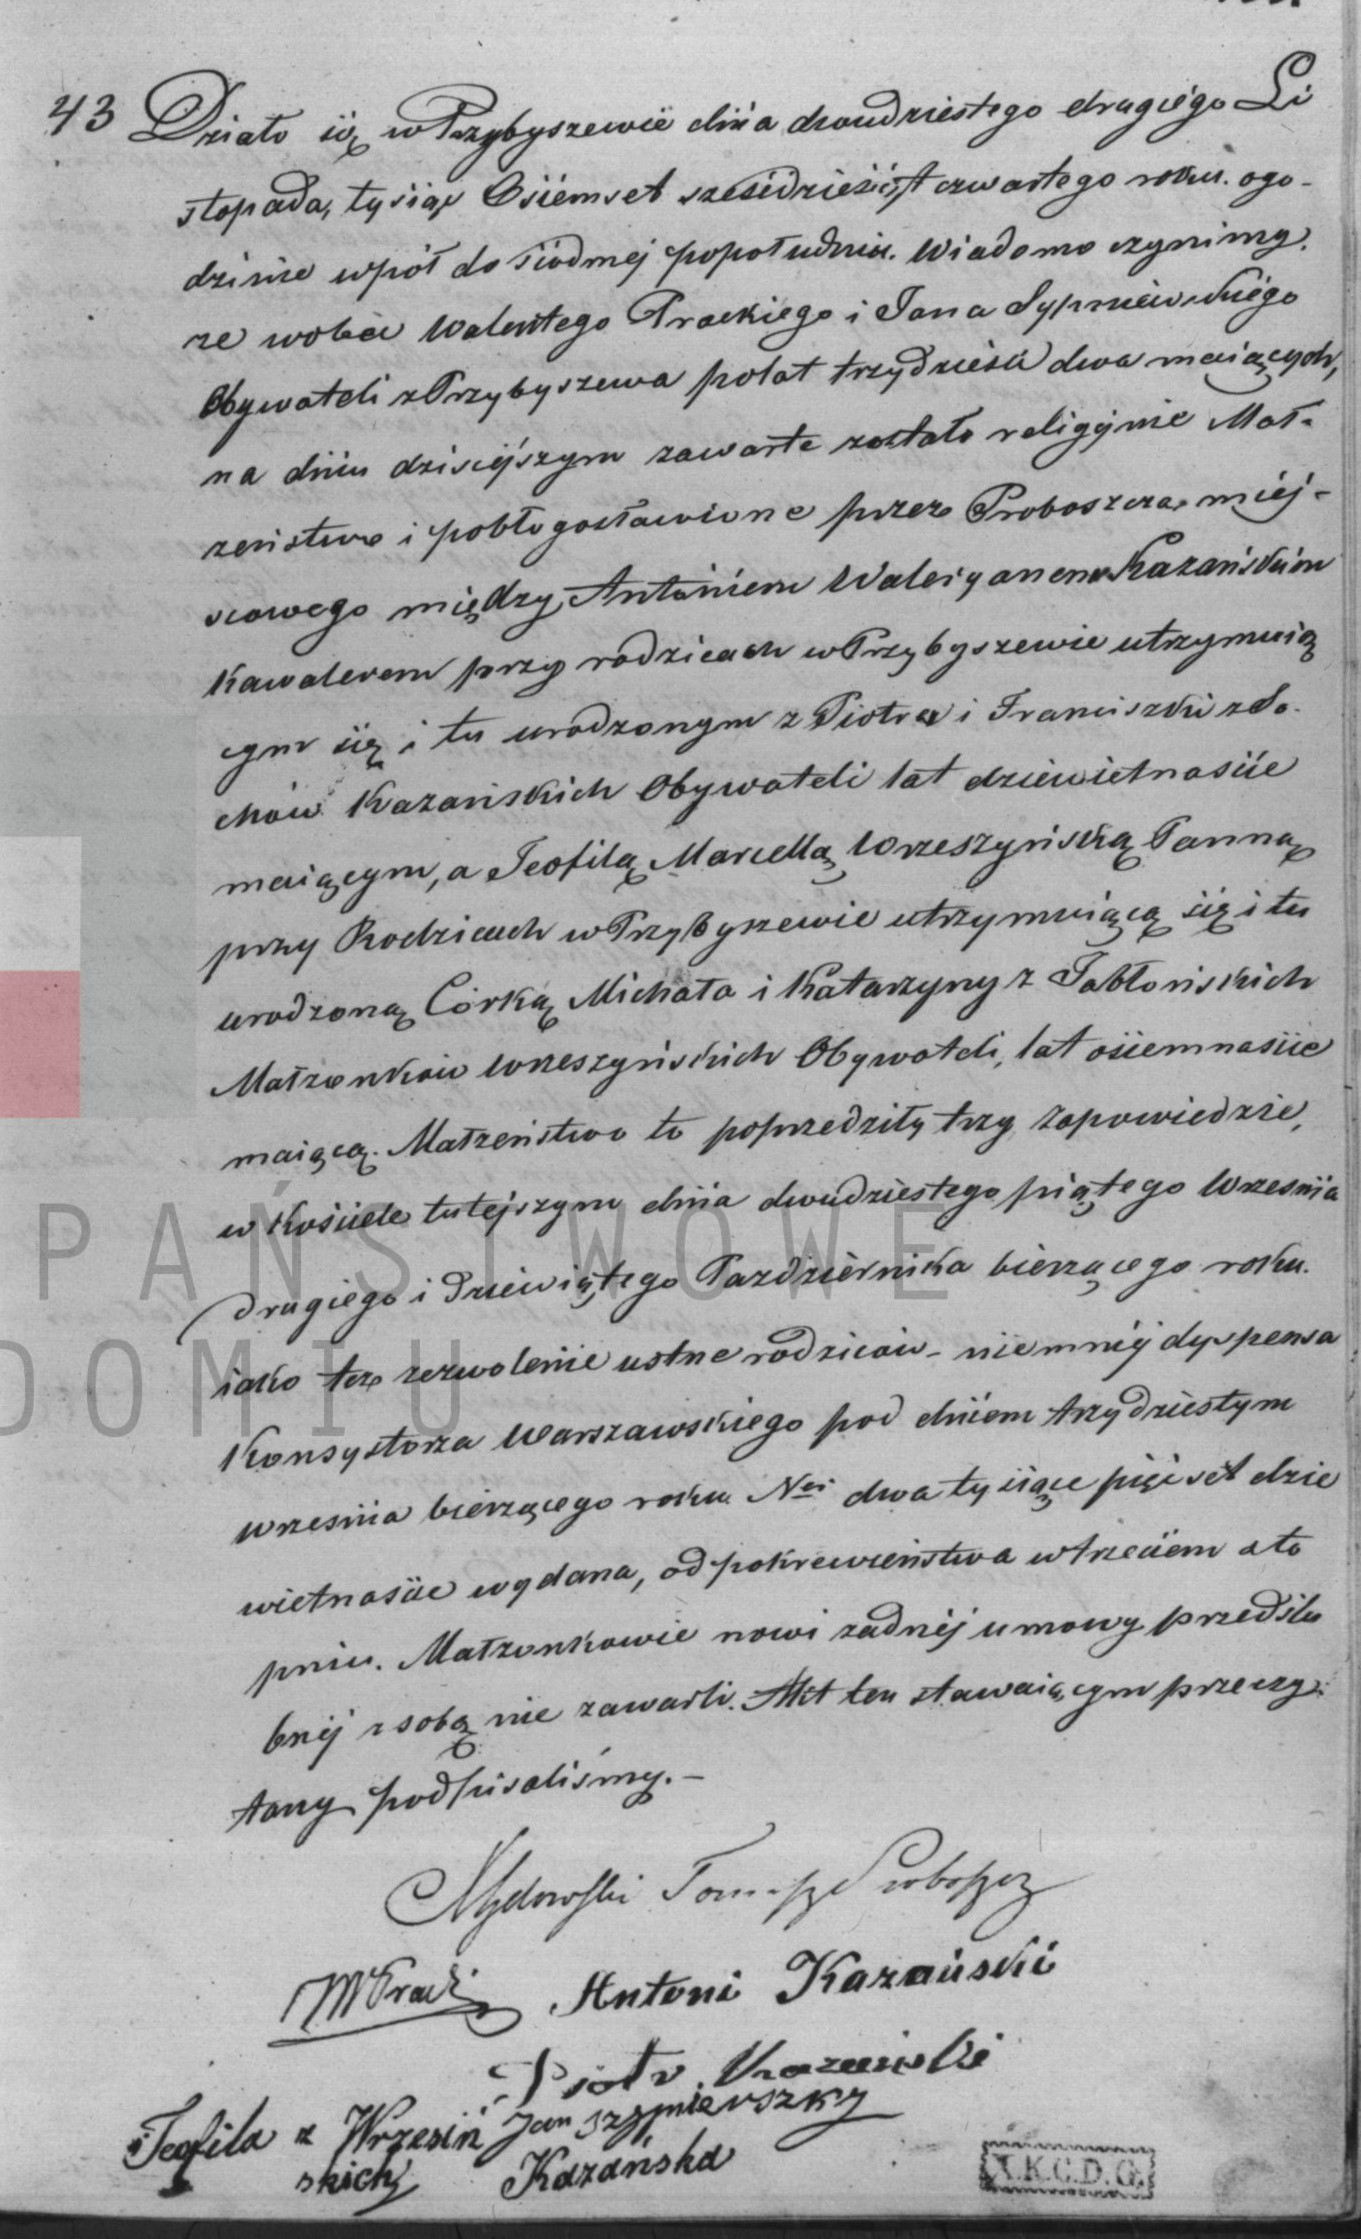 43 Działo się w Przybyszewie dnia dwudziestego drugiego Li
stopada, tysiąc Ośiemset sześćdziesiąt czwartego roku. o go-
dzinie wpół do śiódmej popołudniu. Wiadomo czynimy.
że wobec Walentego Prackiego i Jana Sypniewskiego
Obywateli z Przybyszewa po lat trzydzieśći dwa maiących,
na dniu dzisiejszym zawarte zostało religijnie Mał-
żeństwo i pobłogosławione przez Proboszcza miej-
scowego między Antoniem Waleryanem Kazańskim
Kawalerem przy rodzicach w Przybyszewie utrzymuią
cym się i tu urodzonym z Piotra i Franciszki z So-
chów Kazańskich Obywateli lat dziewietnaśćie
maiącym, a Teofilą Marcellą Wrzeszyńską Panną
przy Rodzicach w Przybyszewie utrzymuiącą się i tu
urodzoną Córką Michała i Katarzyny z Jabłońskich
Małżonków Wrzeszyńskich Obywateli, lat ośiemnaśćie
maiącą. Małżeństwo to poprzedziły trzy zapowiedzie,
w kośćiele tutejszym dnia dwudziestego piątego Wrzesnia
drugiego i dziewiątego Pazdziernika bieżącego roku.
iako też zezwolenie ustne rodziców - niemniéj dyspensa
Konsystorza Warszawskiego pod dniem trzydziestym
wrzesnia bieżącego roku Nr dwa tysiące pięćset dzie
wietnaśćie wydana, od pokrewieństwa w trzeciem sto
pniu. Małżonkowie nowi żadnéj umowy przedślu
bnéj z sobą nie zawarli. Akt ten stawaiącym przeczy-
tany podpisaliśmy. -
Tomasz Proboszcz
Antoni Kazański
Piotr Kazański
Teofila z Wrzesiń Jan szypnierszky
skich Kazańska
A.K.C.D.G.
PAŃSTWOWE
DOMIU